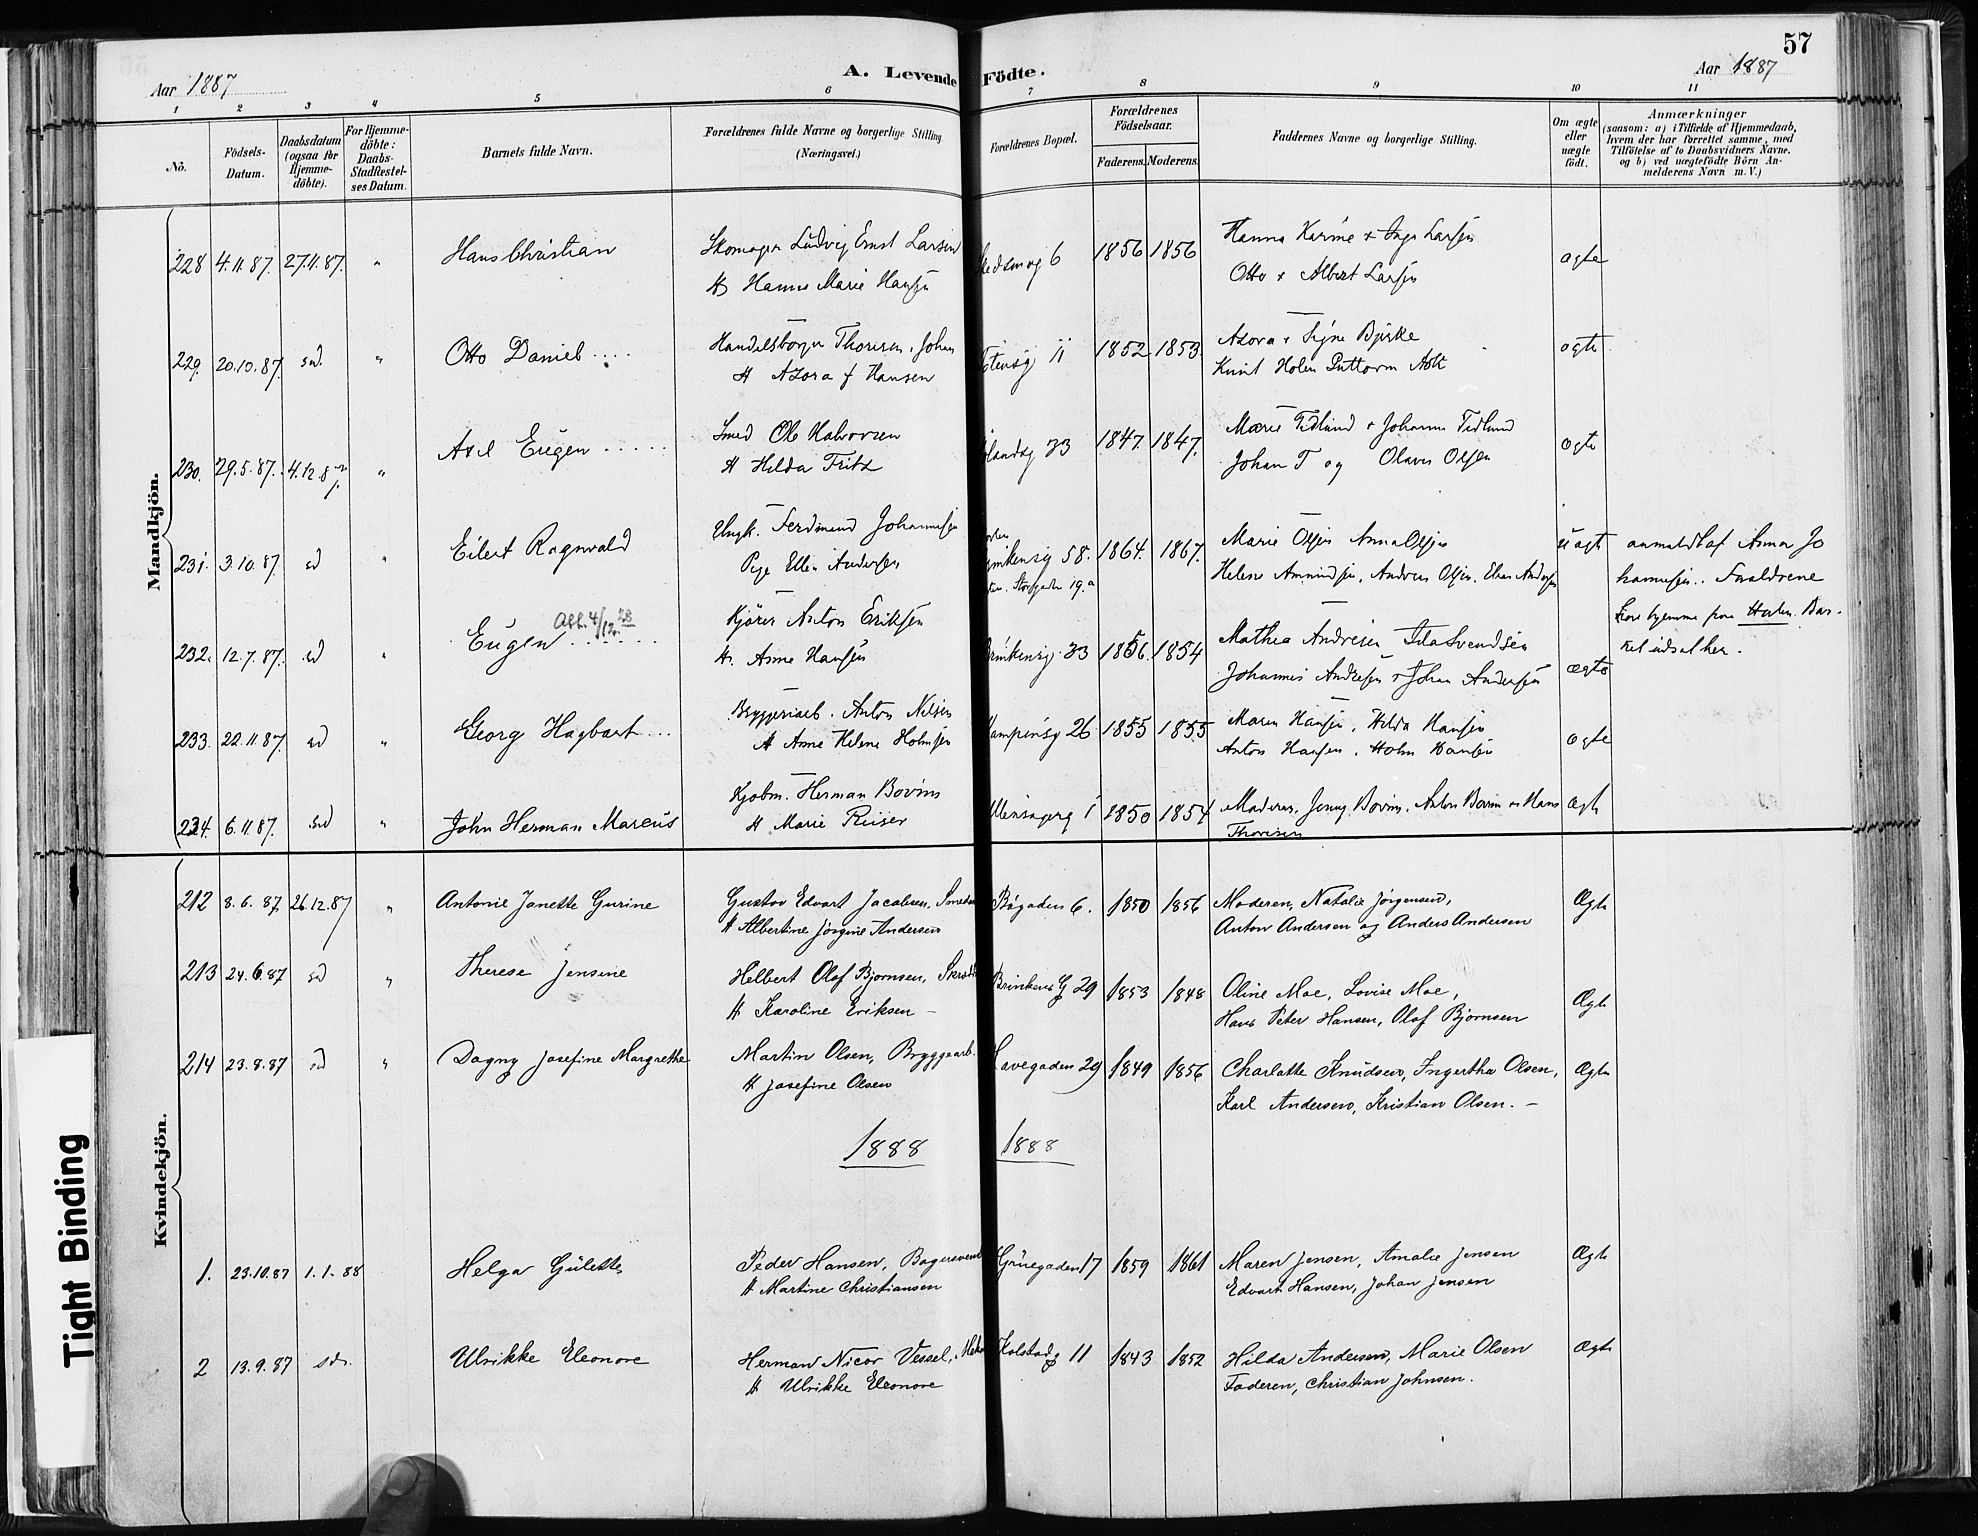 57
Aar 1887
A. Levende Födte.
Aar 1887
1 2 3 4 5 6 7 8 9 10 11
No.
Födsels-
Datum.
Daabsdatum
(ogsaa för
Hjemme-
döbte).
For Hjemme-
döbte:
Daabs-
Stadfæstel-
ses Datum.
Barnets fulde Navn.
Forældrenes fulde Navne og borgerlige Stilling
(Næringsvei.)
Forældrenes Bopæl.
Forældrenes
Födselsaar.
Faderens. Moderens.
Faddernes Navne og borgerlige Stilling.
Om ægte
eller
uægte
födt.
Anmærkninger
(saasom: a) i Tilfælde af Hjemmedaab,
hvem der har forrettet samme, med
Tilföielse af to Daabsvidners Navne.
og b) ved uægtefödte Börn An-
melderens Navn m. V.)
Mandkjön.
228 4.11.87. 27.11.87. " Hans Christian Skomager Ludvig Ernst Larsen 6 1856 1856 Hanna Karine + Inga Larsen ægte
H Hanna Marie Hansen Otto + Albert Larsen
229. 20.10.87. sd. " Otto Daniel Handelsborger Thoresen, Johan 11 1852 1853. ægte
Hansen
230. 29.5.87. 4.12.87. " Axel Eugen Smed Ole Halvorsen 33 1847. 1847. Marie Tidlund + Johanna Tidlund ægte
H Hilda Fritz Johan T og Olaves Olsen
231. 3.10.87. sd " Eilert Ragnvald Ungk. Ferdinand Johannesen 58. 1864. 1867. Marie Olsen Anna Olsen uægte anmeldt af Anna Jo
Pige Ellen Andersen Storgaden 19.a Helene Amundsen, Andreas Olsen, hannesen. Forældrene
232. 12.7.87. sd " Eugen Att. 4/12.28 Kjörer Anton Eriksen Brinkensg. 33 1856. 1854 Mathea Andresen Ida Svendsen ægte
H. Anne Hansen Johannes Andresen + Johan Andersen
233. 22.11.87. sd " Georg Hagbart Bryggeriarb. Anton Nilsen 26 1855 1855 Maren Hansen, Hilda Hansen ægte
H Anne Helene Holmsen Anton Hansen, Holm Hansen
234. 6.11.87. sd " John Herman Marcus Kjøbm. Herman Bovim 1 1850 1854 Moderen, Jenny Bovim, Anton Bovim og Hans Ægte
H Marie Ruiser Thoresen
Kvindekjön.
212 8.6.87. 26.12.87 " Antonie Janette Gurine Gustav Edvart Jacobsen, Bøgaden 6. 1850 1856 Moderen, Natalie Jørgensen, Ægte
H Albertine Jörgine Andersen Anton Andersen og Anders Andersen
213 24.6.87 sd " Therese Jensine Helbert Olaf Bjørnsen, Brinkens G 29 1853 1848 Oline Moe, Lovise Moe, Ægte
H Karoline Eriksen – Hans Peter Hansen, Olaf Bjørnsen
214 23.8.87 sd " Dagny Josefine Margrethe Martin Olsen, Bryggearb. Havegaden 29 1849 1856 Charlotte Knudsen, Ingertha Olsen, Ægte
H Josefine Olsen Karl Andersen, Kristian Olsen. –
1888 1888
1. 23.10.87 1.1.88 Helga Gulette Peder Hansen, Bagersvend Grüegaden 17 1859 1861 Maren Jensen, Amalie Jensen Ægte
H Martine Christiansen Edvart Hansen, Johan Jensen
2 13.9.87 sd. Ulrikke Eleonore Herman Nicor Vessel, Kolstadg 11 1843 1852 Hilda Andersen, Marie Olsen Ægte
H Ulrikke Eleonore Faderen, Christian Johnsen.
Tight Binding